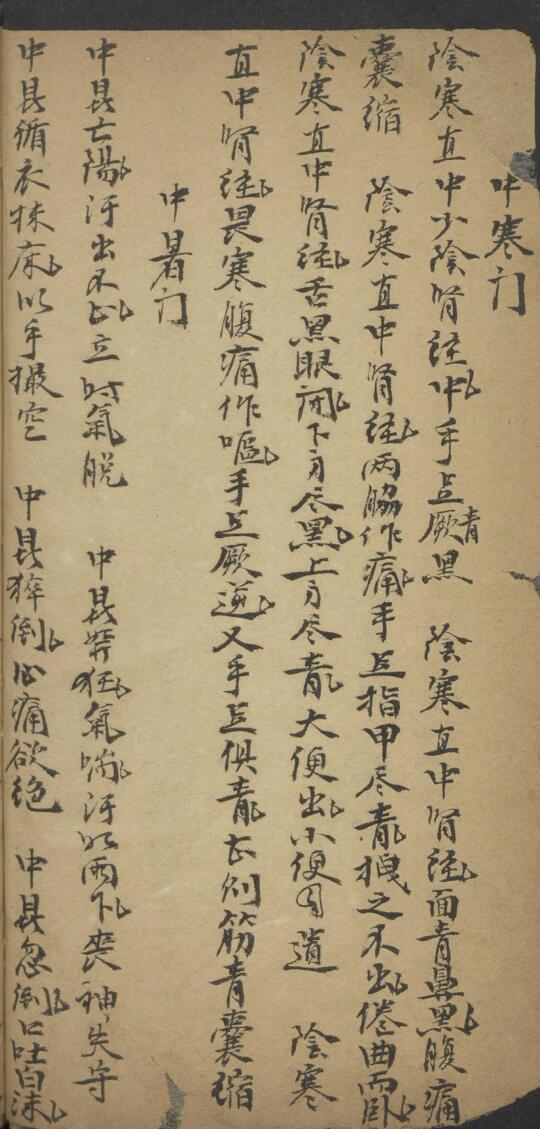 中寒门
陰寒直中少陰腎经中手足厥青黑　陰寒直中腎经面青鼻黑腹痛
囊缩　陰寒直中腎经两脇作痛手足指甲尽青拽之不出倦曲而卧
陰寒直中腎经舌黑眼闭下身尽黑上身尽青大便出小便自遺　陰寒
直中腎经畏寒腹痛作嘔手足厥逆又手足俱青甚则筋青囊缩
中暑门
中暑亡陽汗出不止立时氣脱　中暑發狂氣喘汗如雨下丧神失守
中暑循衣抹床以手撮空　中暑猝倒心痛欲绝　中暑忽倒口吐白沫